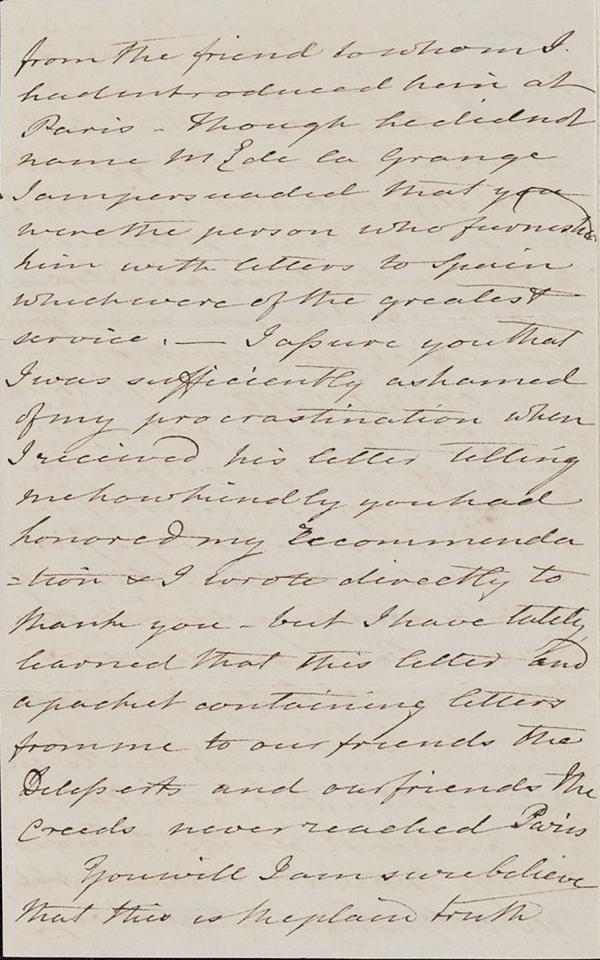 from the friend to whom I
had introduced him at
Paris - Though he did not
name M E de la Grange
I am persuaded that you
were the person who furnished
him with letters to Spain
which were of the greatest
service. — I assure you that
I was sufficiently ashamed
of my procrastination when
I received his letter telling
me how kindly you had
honored my recommenda
=tion & I wrote directly to
thank you - but I have lately
learned that this letter and
a packet containing letters
from me to our friends the
Delesserts and our friends the
Creeds never reached Paris
You will I am sure believe
that this is the plain truth